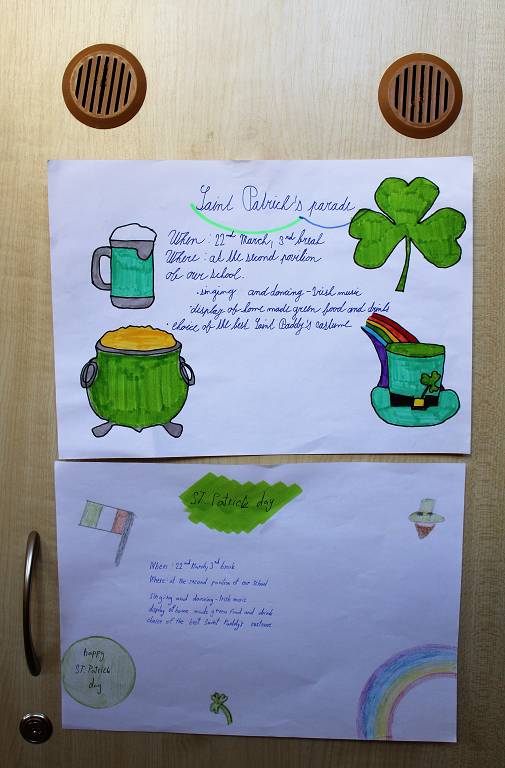 Saint Patrick's parade
When : 22nd March, 3rd break
Where : at the second pavilion
of our school.
· singing and dancing - Irish music
· display of home made green food and drinks
· choice of the best Saint Paddy's costume
ST. Patrick day
When : 22nd March, 3rd break
Where : at the second pavilion of our school
Singing and dancing - Irish music
display of home made green food and drink
choice of the best Saint Paddy's costume
happy
ST. Patrick
day